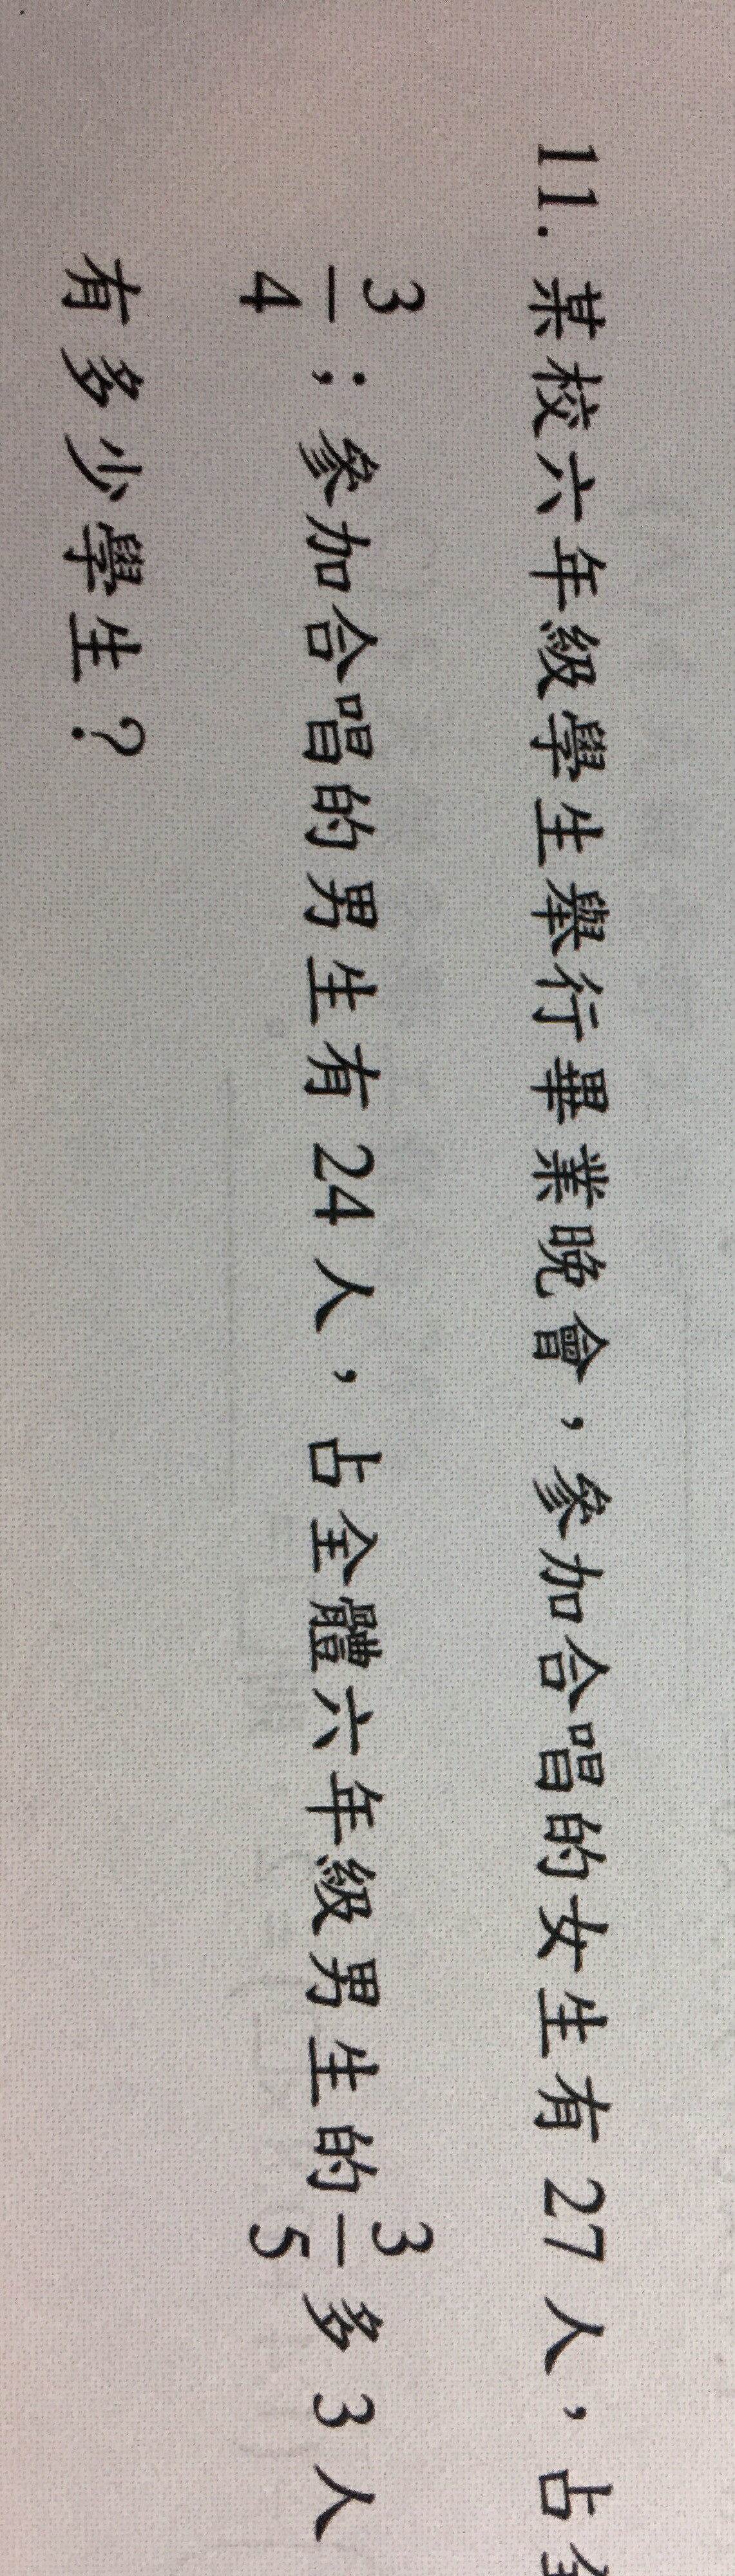 11. 某校六年級學生舉行畢業晚會，參加合唱的女生有 27 人，占全
3/4；參加合唱的男生有 24 人，占全體六年級男生的 3/5 多 3 人
有多少學生？